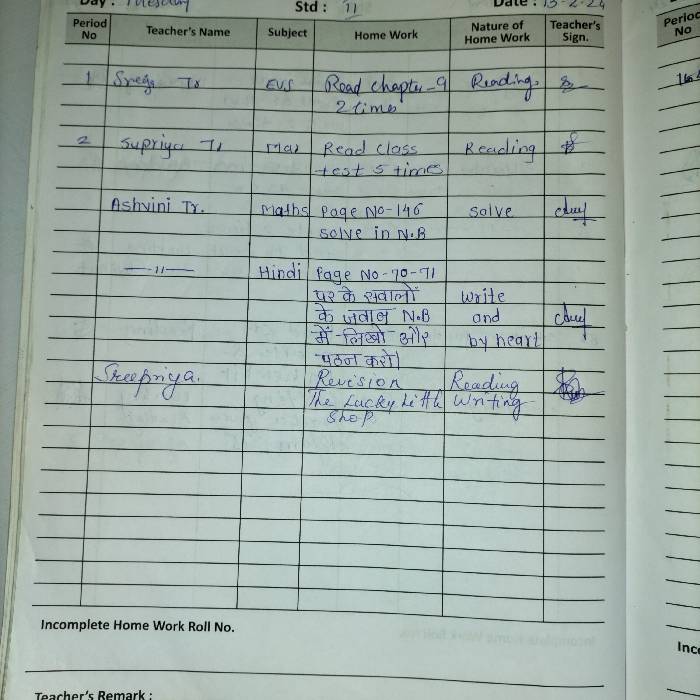 Day : Tuesday Std : II Date : 13-2-24
Period No Teacher's Name Subject Home Work Nature of Home Work Teacher's Sign.
1 EVS Read chapter-9 Reading
2 times
2 Supriya Tr Read class Reading
test 5 times
Ashvini Tr. Maths Page No-146 solve
solve in N.B
—11— Hindi Page No-70-71
पर के सवालों write
के जवाब N.B and
में लिखो और by heart
पठन करो।
Sreepriya. Revision Reading
The Lucky Little Writing
Shop
Incomplete Home Work Roll No.
Teacher's Remark :
Period No
Inc